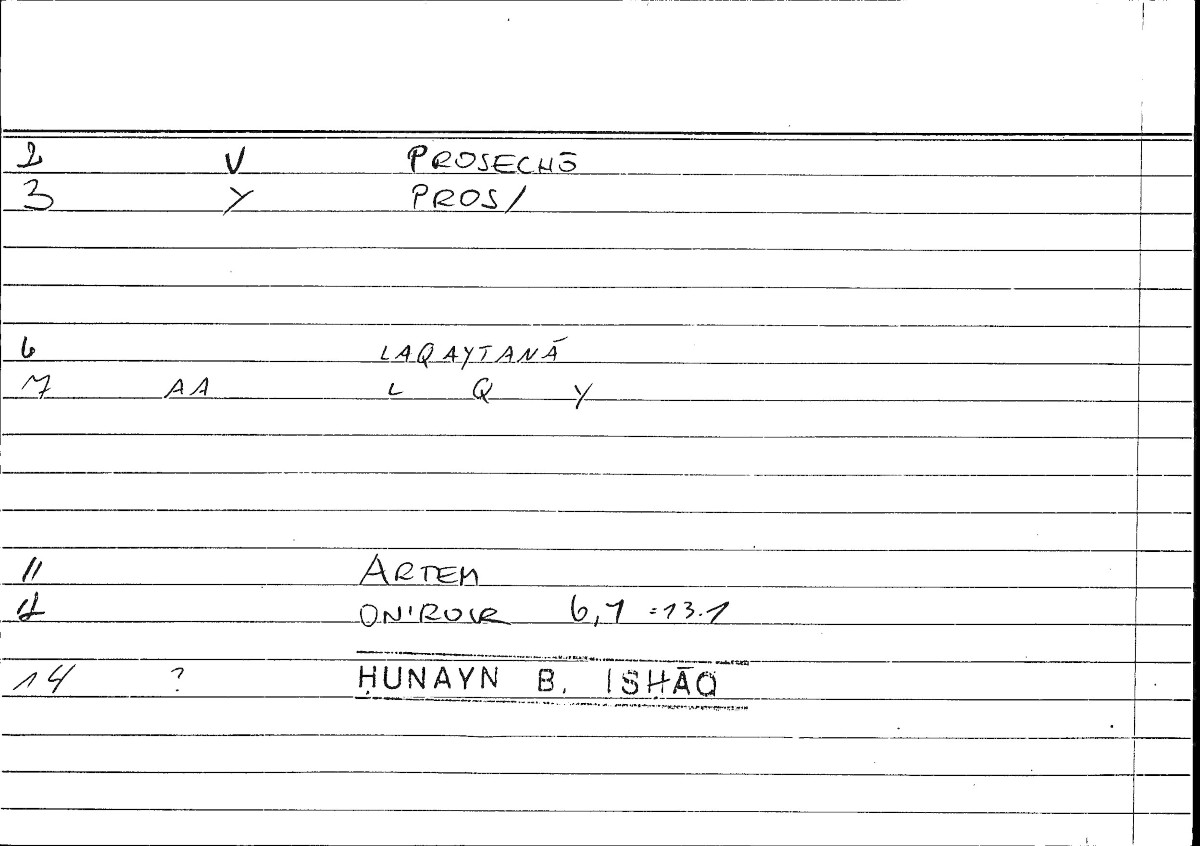 2 V PROSECHŌ
3 Y PROS/
6 LAQAYTANĀ
7 AA L Q Y
11 ARTEM
12 ON'ROCR 6,1 =13.1
14 ? ḤUNAYN B. ISḤĀQ